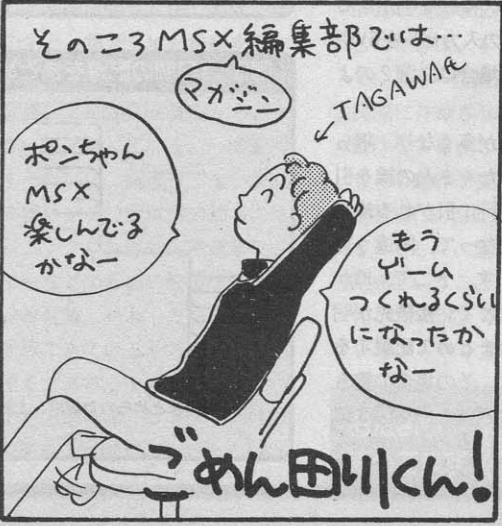 そのころMSX編集部では…
マガジン
←TAGAWA氏
ポンちゃん
MSX
楽しんでる
かなー
もう
ゲーム
つくれるくらい
になったか
なー
ごめん田川くん!